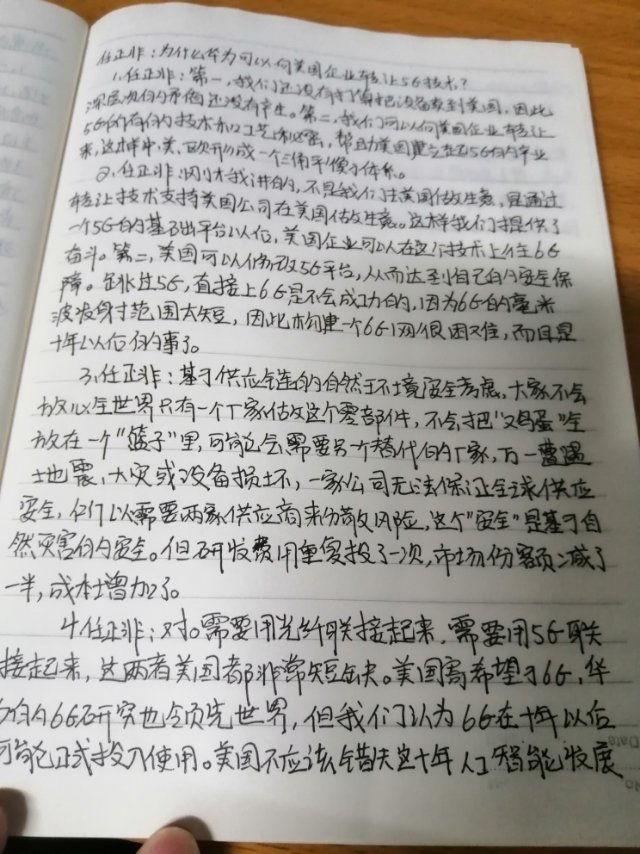 任正非：为什么华为可以向美国企业转让5G技术？
1、任正非：第一，我们还没有打算把设备卖到美国，因此
深层次的矛盾还没有产生。第二，我们可以向美国企业转让
5G的所有的技术和工艺秘密，帮助美国建立起5G的产业
来，这样中、美、欧形成一个三角平衡了体系。
2、任正非：刚才我讲的，不是我们去美国做生意，是通过
转让技术支持美国公司在美国做生意。这样我们提供了
一个5G的基础平台以后，美国企业可以在这个技术上往6G
奋斗。第二，美国可以修改5G平台，从而达到自己的安全保
障。跳过5G，直接上6G是不会成功的，因为6G的毫米
波发射范围太短，因此构建一个6G网很困难，而且是
十年以后的事了。
3、任正非：基于供应链的自然环境安全考虑，大家不会
放心全世界只有一个厂家做这个零部件，不会把"鸡蛋"全
放在一个"篮子"里，可能会需要另一个替代的厂家，万一遭遇
地震、火灾或设备损坏，一家公司无法保证全球供应
安全，所以需要两家供应商来分散风险，这个"安全"是基于自
然灾害的安全。但研发费用重复投了一次，市场份额减了
一半，成本增加了。
4、任正非：对。需要用光纤联接起来，需要用5G联
接起来，这两者美国都非常短缺。美国寄希望于6G，华
为的6G研究也领先世界，但我们认为6G在十年以后
可能正式投入使用。美国不应该错失这十年人工智能发展
Date
No